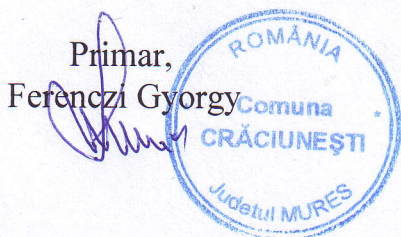 Primar,
Ferenczi Gyorgy
ROMÂNIA
Comuna
CRĂCIUNEŞTI
*
Judetul MURES